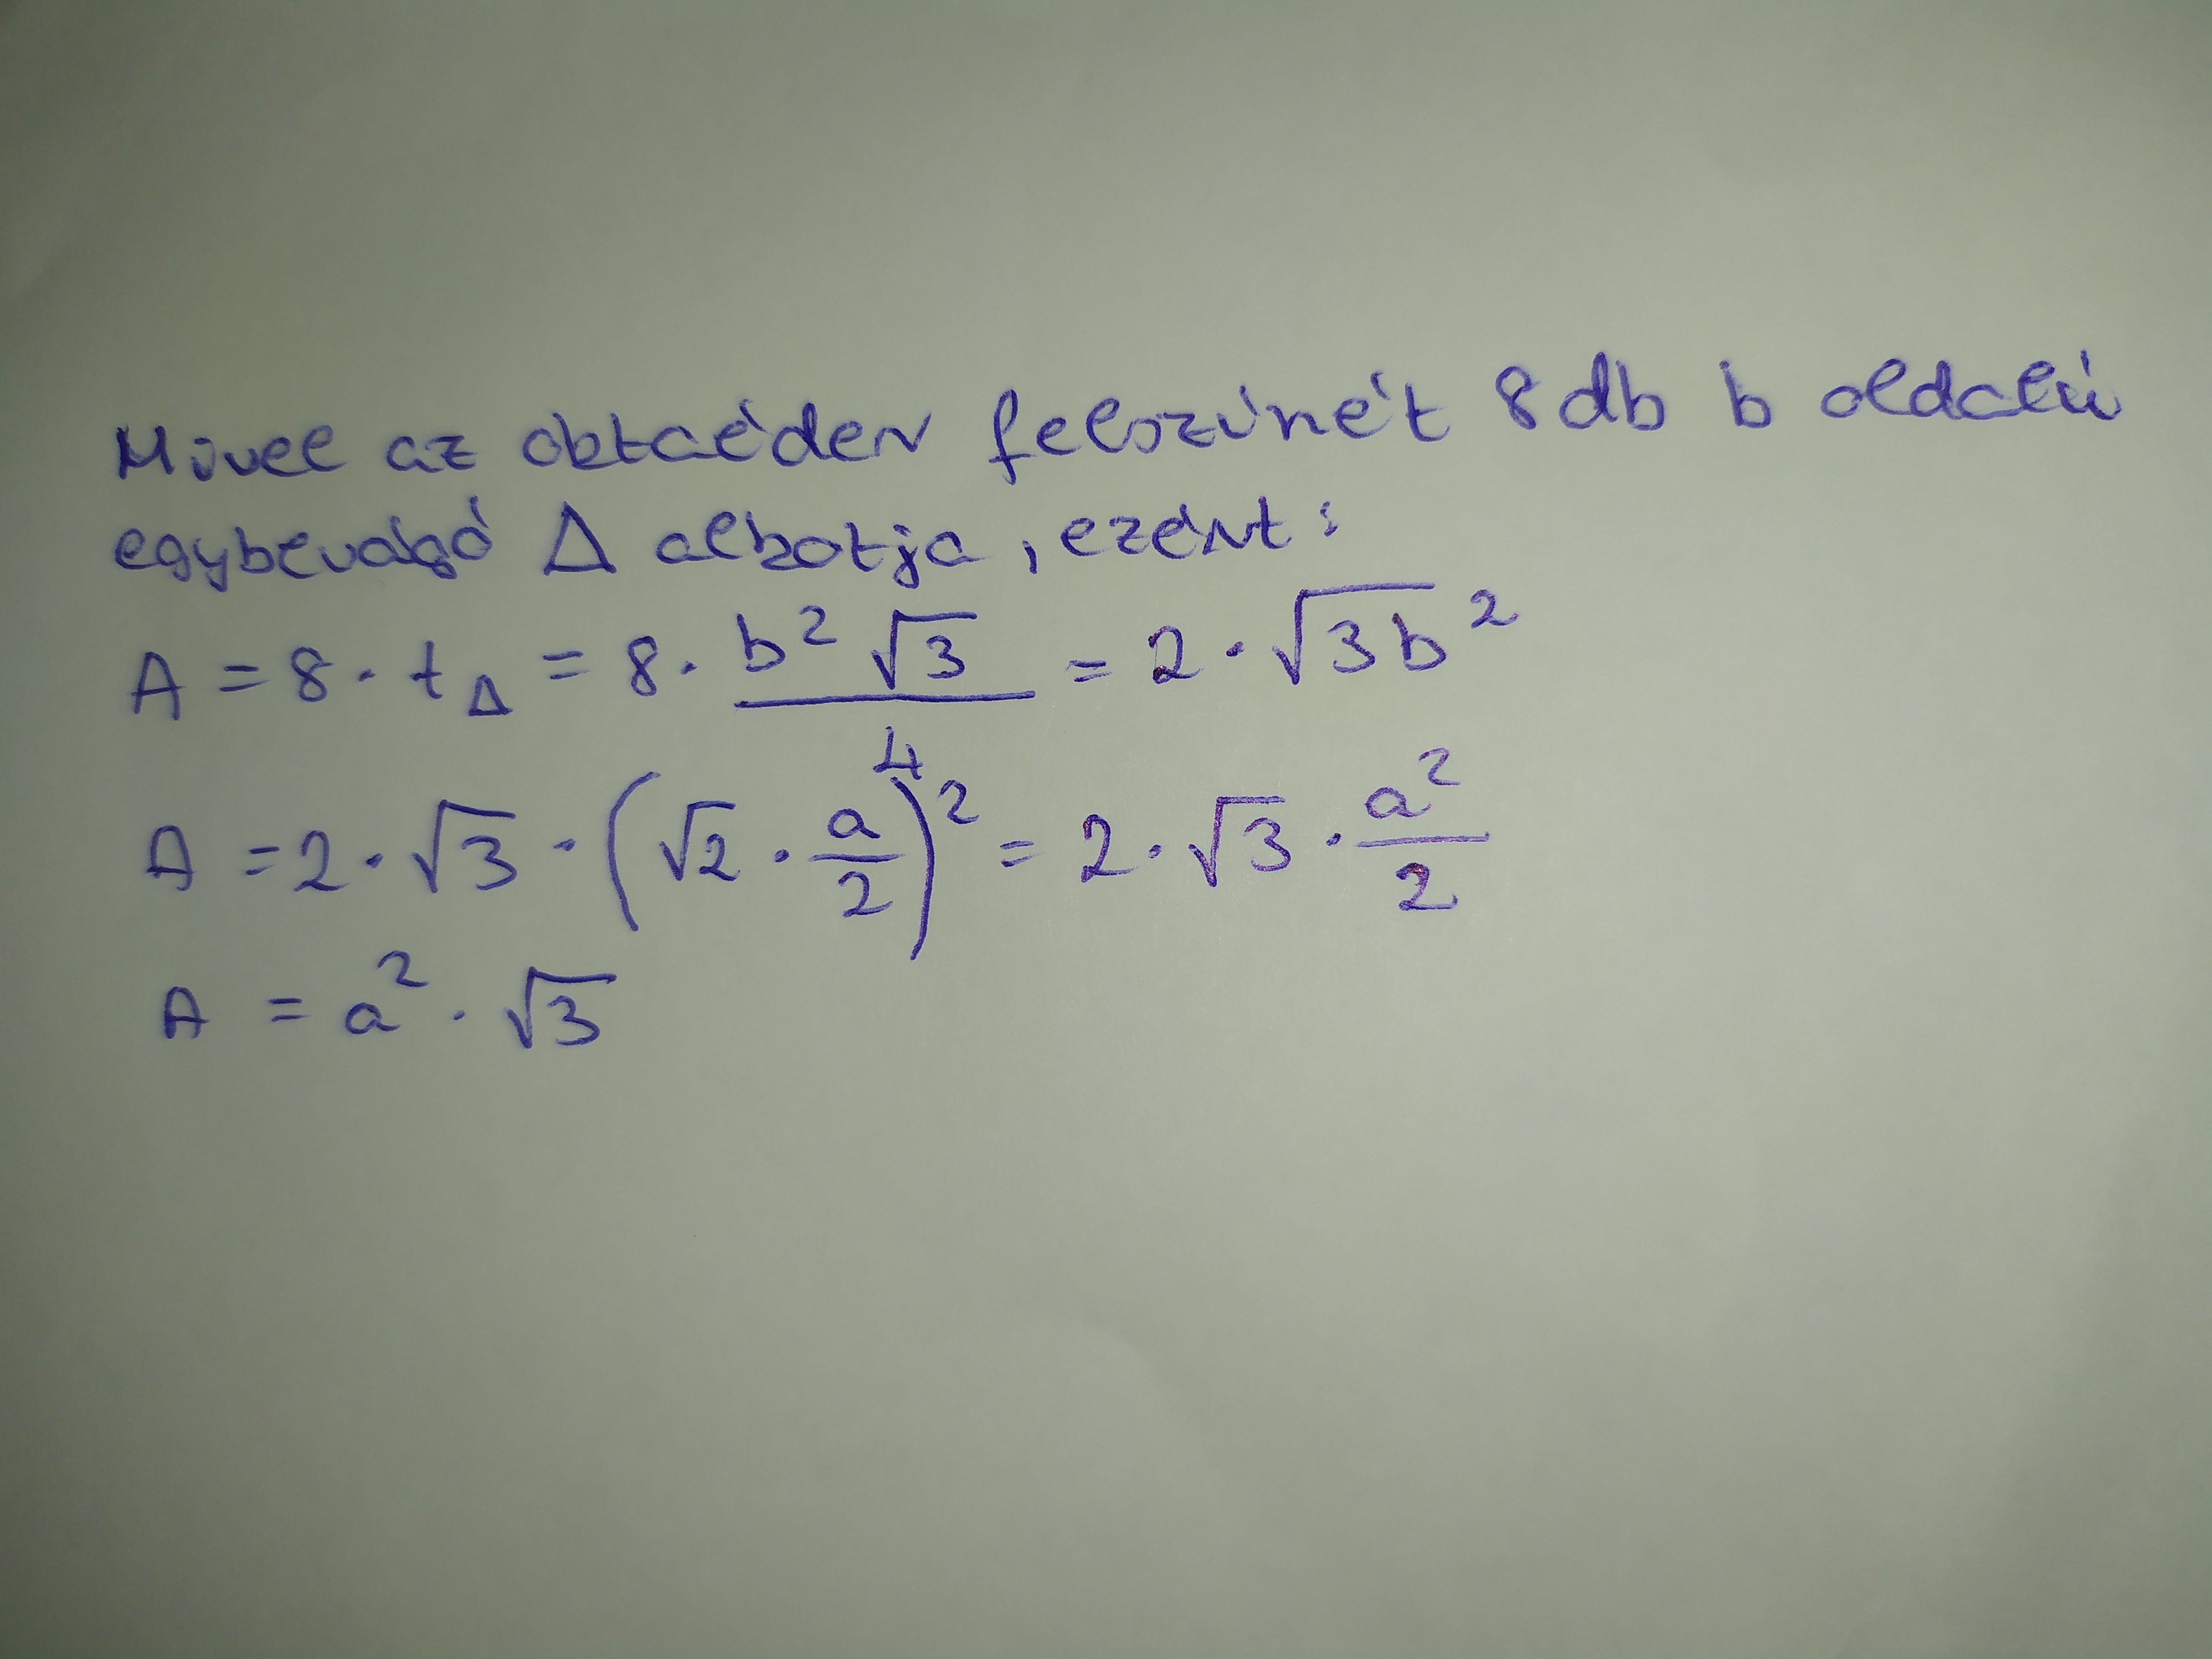 Mivel az oktaéder felszínét 8 db b oldalú
egybevágó Δ alkotja, ezért:
A = 8 · t_Δ = 8 · b²√3/4 = 2 · √(3b)²
A = 2 · √3 · (√2 · a/2)² = 2 · √3 · a²/2
A = a² · √3